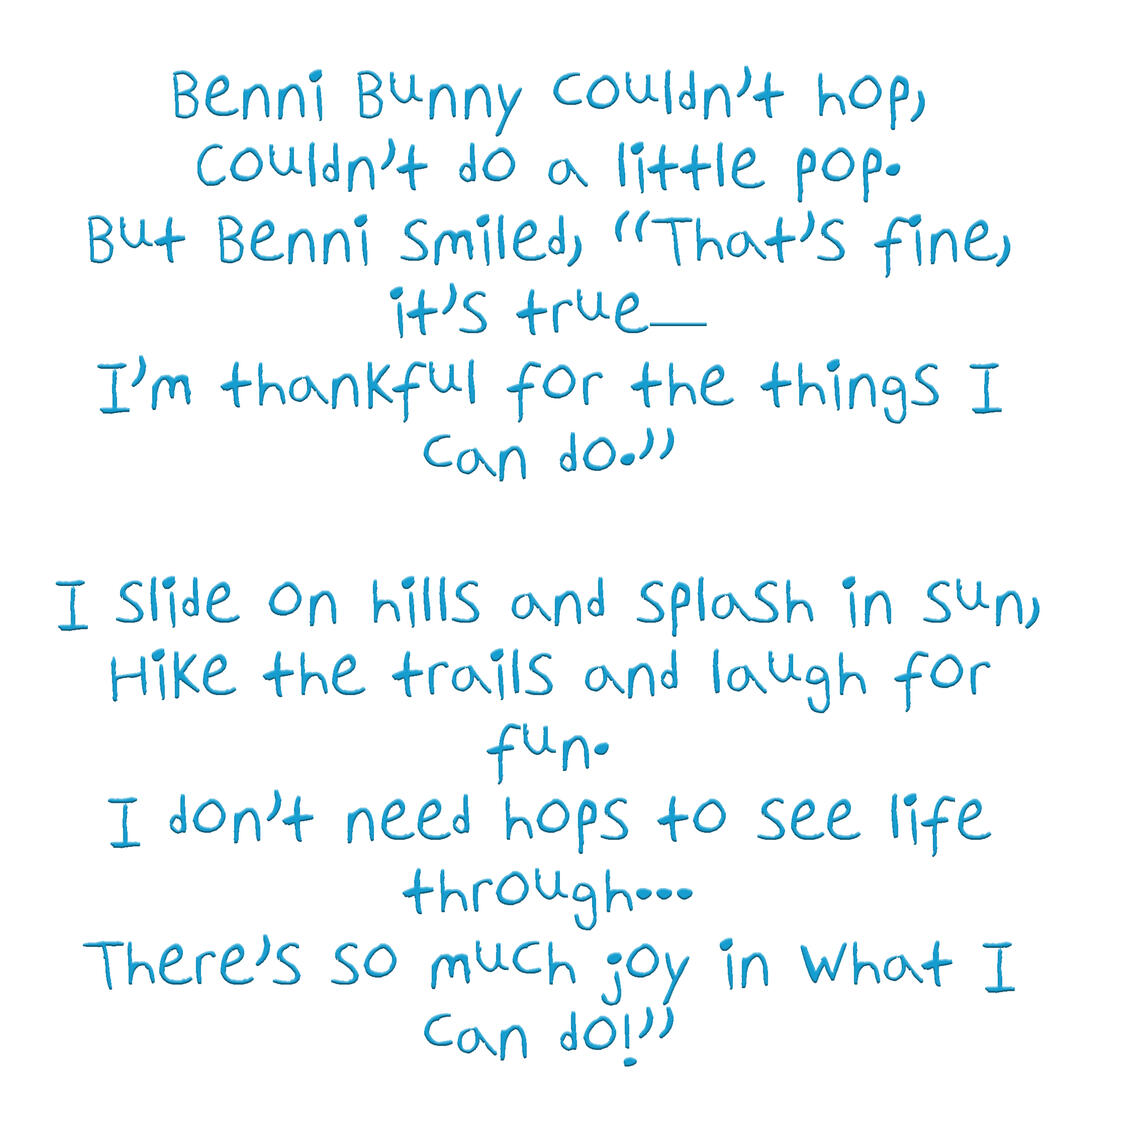 Benni Bunny couldn't hop,
couldn't do a little pop.
But Benni smiled, “That's fine,
it's true—
I'm thankful for the things I
can do.”
I slide on hills and splash in sun,
Hike the trails and laugh for
fun.
I don't need hops to see life
through...
There's so much joy in what I
can do!”